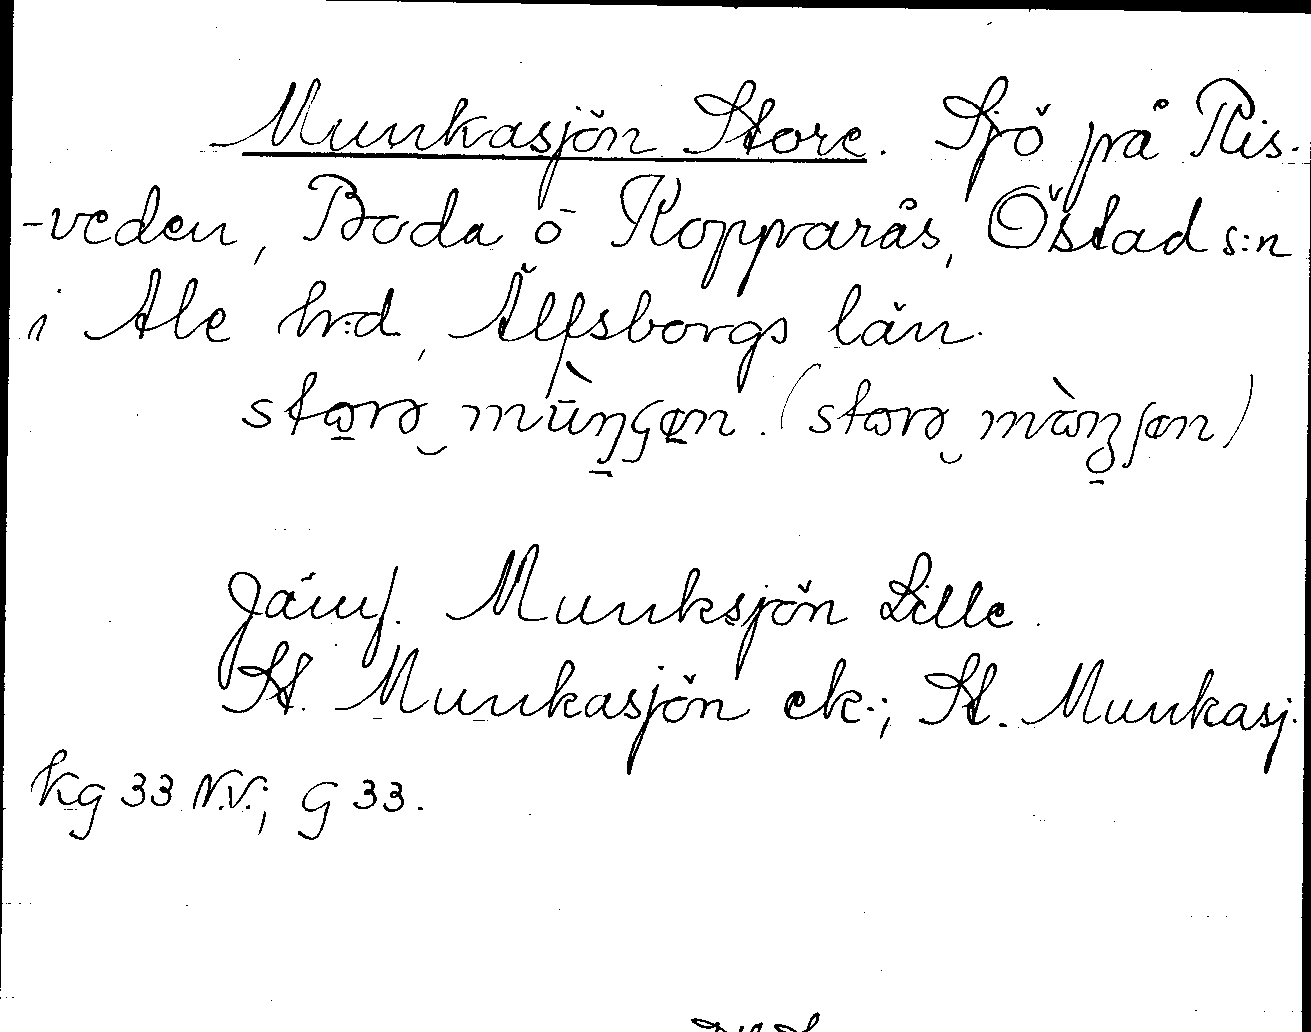 Munkasjön Store. Sjö på Ris-
-veden, Boda o Kopparås, Östad s:n
i Ale hrd, Älfsborgs län.
Jämf. Munksjön Lille.
St. Munkasjön ek.; St. Munkasj.
kg 33 N.V.; G 33.